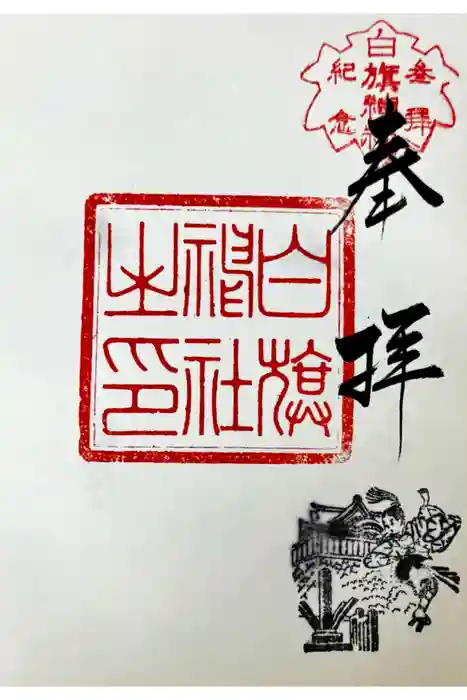 参拝
白旗神社
紀念
奉拝
白旗
神社
之印